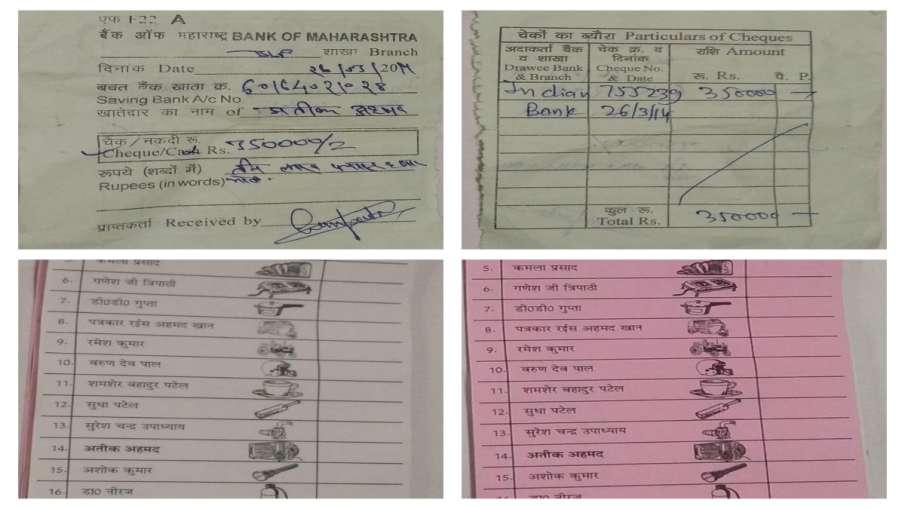 एफ F-22 A
बैंक ऑफ महाराष्ट्र BANK OF MAHARASHTRA
शाखा Branch
दिनांक Date 26/03/2014
बचत बैंक खाता क्र. 60164021028
Saving Bank A/c No
खातेदार का नाम of अतीक अहमद
चैक/नकदी रू.
Cheque/Cash Rs. 350000/=
रूपये (शब्दों में) तीन लाख पचास हजार
Rupees (in words) मात्र.
प्राप्तकर्ता Received by
चेकों का ब्यौरा Particulars of Cheques
अदाकर्ता बैंक व शाखा Drawee Bank & Branch
चेक क्र. व दिनांक Cheque No. & Date
राशि Amount
रू. Rs. पै. P.
Indian 755239 350000 —
Bank 26/3/14
कुल रू. Total Rs. 350000 —
कमला प्रसाद
6. गणेश जी त्रिपाठी
7. डी०डी० गुप्ता
8. पत्रकार रईस अहमद खान
9. रमेश कुमार
10. वरुण देव पाल
11. शमशेर बहादुर पटेल
12. सुधा पटेल
13. सुरेश चन्द्र उपाध्याय
14. अतीक अहमद
15. अशोक कुमार
16. डा० नीरज
5. कमला प्रसाद
6. गणेश जी त्रिपाठी
7. डी०डी० गुप्ता
8. पत्रकार रईस अहमद खान
9. रमेश कुमार
10. वरुण देव पाल
11. शमशेर बहादुर पटेल
12. सुधा पटेल
13. सुरेश चन्द्र उपाध्याय
14. अतीक अहमद
15. अशोक कुमार
डा० नीरज